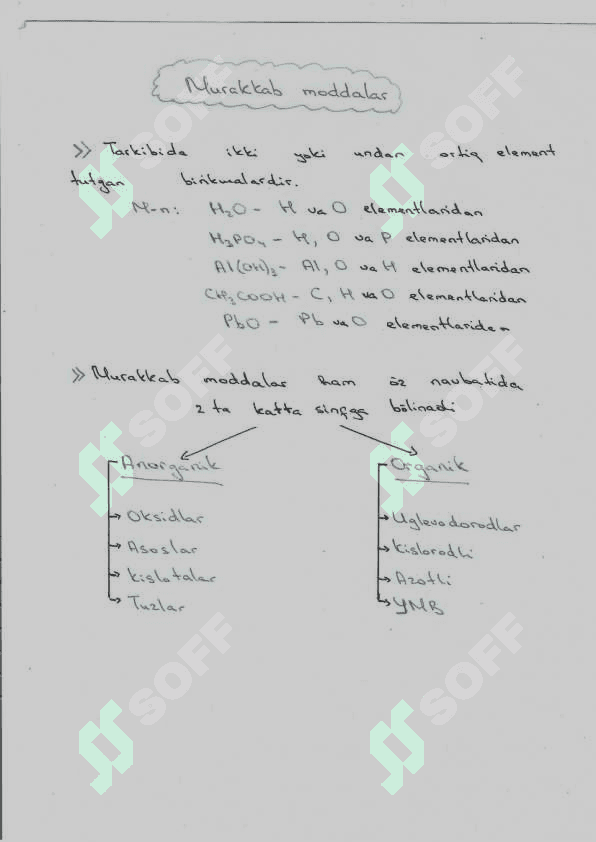 Murakkab moddalar
>> Tarkibida ikki yoki undan ortiq element
tutgan birikmalardir.
M-n: H₂O - H va O elementlaridan
H₃PO₄ - H, O va P elementlaridan
Al(OH)₃ - Al, O va H elementlaridan
CH₃COOH - C, H va O elementlaridan
PbO - Pb va O elementlaridan
>> Murakkab moddalar ham öz navbatida
2 ta katta sinfga bölinadi
Anorganik
Oksidlar
Asoslar
kislotalar
Tuzlar
Organik
Uglevodorodlar
kislorodli
Azotli
YMB
SOFF
SOFF
SOFF
SOFF
SOFF
SOFF